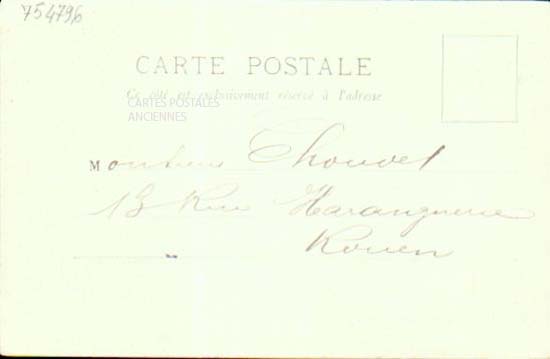 754796
CARTE POSTALE
Ce côté est exclusivement réservé à l'adresse
CARTES POSTALES
ANCIENNES
Monsieur Chouvet
13 Rue Haranguerie
Rouen